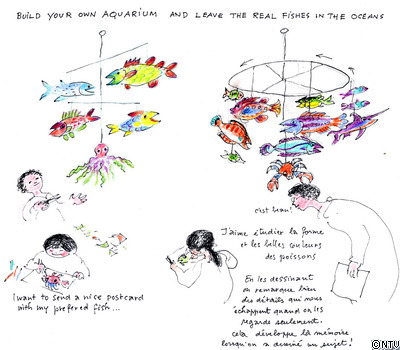 BUILD YOUR OWN AQUARIUM AND LEAVE THE REAL FISHES IN THE OCEANS
c'est beau!
J'aime étudier la forme
et les belles couleurs
des poissons
I want to send a nice postcard
with my prefered fish...
En les dessinant
on remarque bien
des détails qui nous
échappent quand on les
regarde seulement.
cela développe la mémoire
lorsqu'on a dessiné un sujet!
©NTU